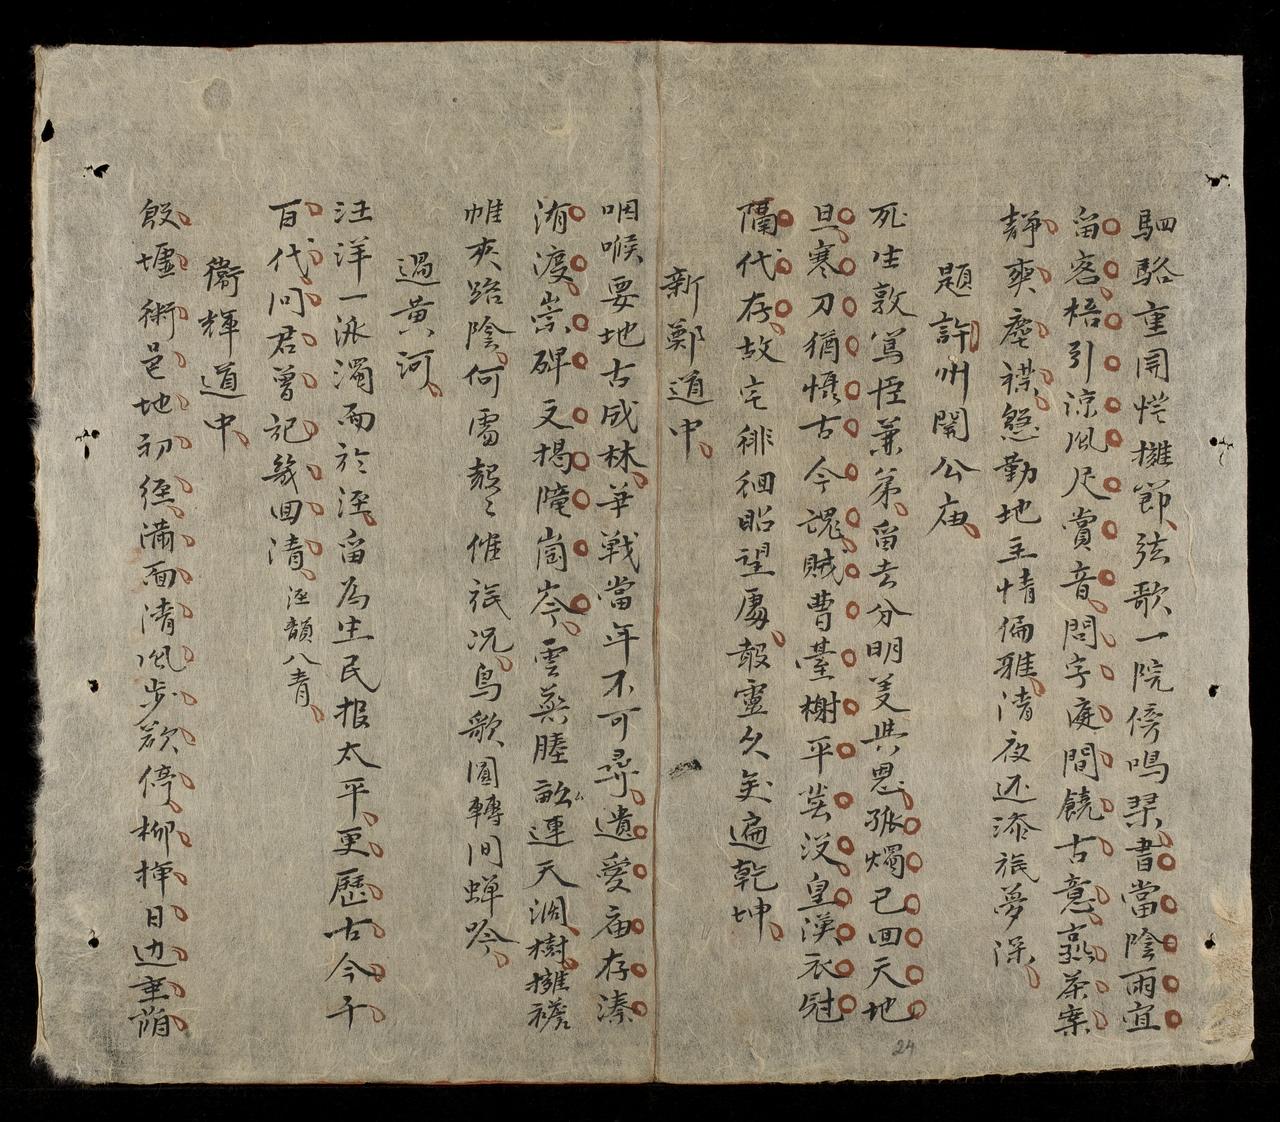 駟駱重開愷擁節弦歌一院傍鳴琹書當陰雨宜
留客梧引涼風足賞音問字庭間饒古意烹茶案
靜爽塵襟慇勤地主情偏雅清夜还添旅夢深
題許州關公庙
死生敦篤臣兼弟留去分明义與恩孤燭已回天地
旦寒刀猶慑古今魂賊曹臺榭平芸没皇漢衣冠
隔代存故宅徘徊昭望處報靈久矣遍乾坤
新鄭道中
咽喉要地古成林華戦當年不可尋遺愛庙存溱
洧渡崇碑文揭隆崮岑雲蒸塍畝連天濶樹擁襜
帷夾路陰何處鼛〻催旅况鳥歌圓轉间蝉吟
過黄河
汪洋一泒濁而於涇留為生民报太平更歷古今千
百代问君曾記幾回清涇韻八青
衞輝道中
殷墟衛邑地初經満面清風步欲停柳插日边重蔭
24